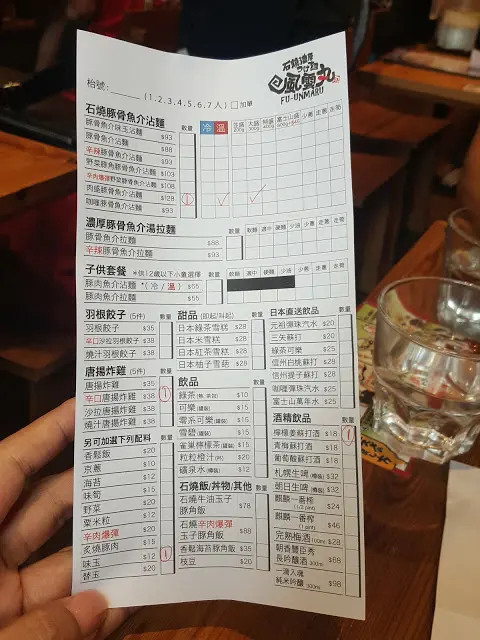 石燒濃厚
つけ麵
風雲丸
FU-UNMARU
枱號:______ (1.2.3.4.5.6.7人) □加單
石燒豚骨魚介沾麵 數量 冷 溫 並盛200g 大盛300g 特盛400g 富士山盛600g+$40 少蔥 走蔥 走筍
豚骨魚介味玉沾麵 $93
豚骨魚介沾麵 $88
辛辣豚骨魚介沾麵 $93
野菜豚骨魚介沾麵 $103
辛肉爆彈野菜豚骨魚介沾麵 $108
肉盛豚骨魚介沾麵 $128 1
咖喱豚骨魚介沾麵 $93
濃厚豚骨魚介湯拉麵 數量 軟麵 適中 硬麵 少油 少蔥 走蔥 走筍
豚骨魚介拉麵 $88
辛辣豚骨魚介拉麵 $93
子供套餐 *估12歲以下小童選擇 數量 軟麵 適中 硬麵 少油 少蔥 走蔥 走筍
豚肉魚介沾麵 *(冷/溫) $55
豚肉魚介拉麵 $55
羽根餃子 (5件) 數量
羽根餃子 $35
辛口沙拉羽根餃子 $38
燒汁羽根餃子 $38
唐揚炸雞 (5件) 數量
唐揚炸雞 $35
辛口唐揚炸雞 $38 1
沙拉唐揚炸雞 $38
燒汁唐揚炸雞 $38
另可加選下列配料 數量
香鬆飯 $20
京蔥 $10
海苔 $12
味筍 $15
野菜 $20
粟米粒 $12
辛肉爆彈 $20
炙燒豚肉 $15
味玉 $12 1
替玉 $20
甜品 (即起/叫起) 數量
日本綠茶雪糕 $28
日本米雪糕 $28
日本紅茶雪糕 $28
日本柚子雪葩 $28
飲品 數量
綠茶(熱,茶包) $10
可樂(罐裝) $15
零系可樂(罐裝) $15
雪碧(罐裝) $15
雀巢檸檬茶(罐裝) $15
粒粒橙汁(杯) $20
礦泉水(樽) $12
石燒飯/丼物/其他 數量
石燒牛油玉子
豚角飯 $78
石燒辛肉爆彈
玉子豚角飯 $88
香鬆海苔豚角飯 $35
枝豆 $20
日本直送飲品 數量
元祖彈珠汽水 $20
三矢蘇打 $20
綠茶可樂 $25
信州白桃蘇打 $28
信州提子蘇打 $28
咖喱彈珠汽水 $25
富士山萬年水 $25
酒精飲品 數量
檸檬姜蘇打酒 $18 1
青梅蘇打酒 $18
葡萄酸蘇打酒 $18
札幌生啤(樽裝) $32
朝日生啤(樽裝) $32
麒麟一番榨
(1/2 pint) $24
麒麟一番榨
(1 pint) $46
完熟梅酒100ml $28
朝香豐臣秀
長吟釀酒300ml $58
一滴入魂
純米吟釀300ml $98